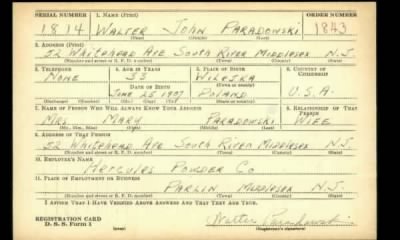 SERIAL NUMBER 1. NAME (Print) ORDER NUMBER
1814 WALTER JOHN PARADOWSKI 1843
(First) (Middle) (Last)
2. ADDRESS (Print)
52 Whitehead Ave South River Middlesex N.J.
(Number and street or R. F. D. number) (Town) (County) (State)
3. TELEPHONE 4. AGE IN YEARS 5. PLACE OF BIRTH 6. COUNTRY OF CITIZENSHIP
None 33 Wileska U.S.A.
DATE OF BIRTH
June 25 1907 Poland
7. NAME OF PERSON WHO WILL ALWAYS KNOW YOUR ADDRESS 8. RELATIONSHIP OF THAT PERSON
Mrs Mary Paradowski Wife
(Mr., Mrs., Miss) (First) (Middle) (Last)
9. ADDRESS OF THAT PERSON
52 Whitehead Ave South River Middlesex N.J.
(Number and street or R. F. D. number) (Town) (County) (State)
10. EMPLOYER'S NAME
Hercules Powder Co
11. PLACE OF EMPLOYMENT OR BUSINESS
Parlin Middlesex N.J.
(Number and street or R. F. D. number) (Town) (County) (State)
I AFFIRM THAT I HAVE VERIFIED ABOVE ANSWERS AND THAT THEY ARE TRUE.
REGISTRATION CARD
D. S. S. Form 1 (over) Walter Paradowski
(Registrant's signature)